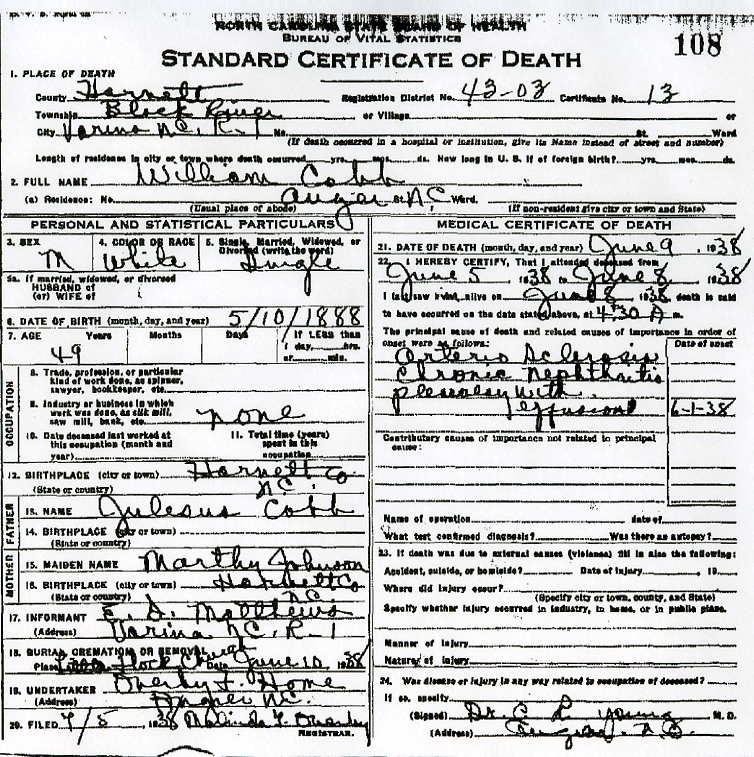 NORTH CAROLINA STATE BOARD OF HEALTH
BUREAU OF VITAL STATISTICS
STANDARD CERTIFICATE OF DEATH
108
1. PLACE OF DEATH
County Harnett Registration District No. 43-03 Certificate No. 13
Township Black River or Village or
City Varina N.C. R. 1 No. St. Ward
(If death occurred in a hospital or institution, give its Name instead of street and number)
Length of residence in city or town where death occurred yrs. mos. ds. How long in U. S. if of foreign birth? yrs. mos. ds.
2. FULL NAME William Cobb
(a) Residence: No. Angier St. N.C. Ward.
(Usual place of abode) (If non-resident give city or town and State)
PERSONAL AND STATISTICAL PARTICULARS
3. SEX 4. COLOR OR RACE 5. Single, Married, Widowed, or Divorced (write the word)
M White Single
5a. If married, widowed, or divorced
HUSBAND of
(or) WIFE of
6. DATE OF BIRTH (month, day, and year) 5/10/1888
7. AGE Years Months Days If LESS than
1 day, hrs.
or min.
49
OCCUPATION
8. Trade, profession, or particular
kind of work done, as spinner,
sawyer, bookkeeper, etc.
9. Industry or business in which
work was done, as silk mill,
saw mill, bank, etc. none
10. Date deceased last worked at
this occupation (month and
year)
11. Total time (years)
spent in this
occupation
12. BIRTHPLACE (city or town) Harnett Co
(State or country) N.C.
FATHER
13. NAME Juleaus Cobb
14. BIRTHPLACE (city or town)
(State or country)
MOTHER
15. MAIDEN NAME Marthy Johnson
16. BIRTHPLACE (city or town) Harnett Co
(State or country) N.C.
17. INFORMANT E. D. Matthews
(Address) Varina N.C. R-1
18. BURIAL CREMATION OR REMOVAL
Place Flock Church Date June 10 1938
19. UNDERTAKER Overby F. Home
(Address) Angier N.C.
20. FILED 7/5 1938 Malinda F. Overby
REGISTRAR.
MEDICAL CERTIFICATE OF DEATH
21. DATE OF DEATH (month, day, and year) June 9 1938
22. I HEREBY CERTIFY, That I attended deceased from
June 5 1938 to June 8 1938
I last saw h im alive on June 8 1938 death is said
to have occurred on the date stated above, at 4:30 A m.
The principal cause of death and related causes of importance in order of
onset were as follows: Date of onset
Arterio Sclerosis
Chronic Nephthritis
pleuresy with
effusion 6-1-38
Contributory causes of importance not related to principal
cause:
Name of operation date of
What test confirmed diagnosis? Was there an autopsy?
23. If death was due to external causes (violence) fill in also the following:
Accident, suicide, or homicide? Date of injury 19
Where did injury occur?
(Specify city or town, county, and State)
Specify whether injury occurred in industry, in home, or in public place.
Manner of injury
Nature of injury
24. Was disease or injury in any way related to occupation of deceased?
If so, specify
(Signed) Dr. C L Young M. D.
(Address) Angier, N.C.